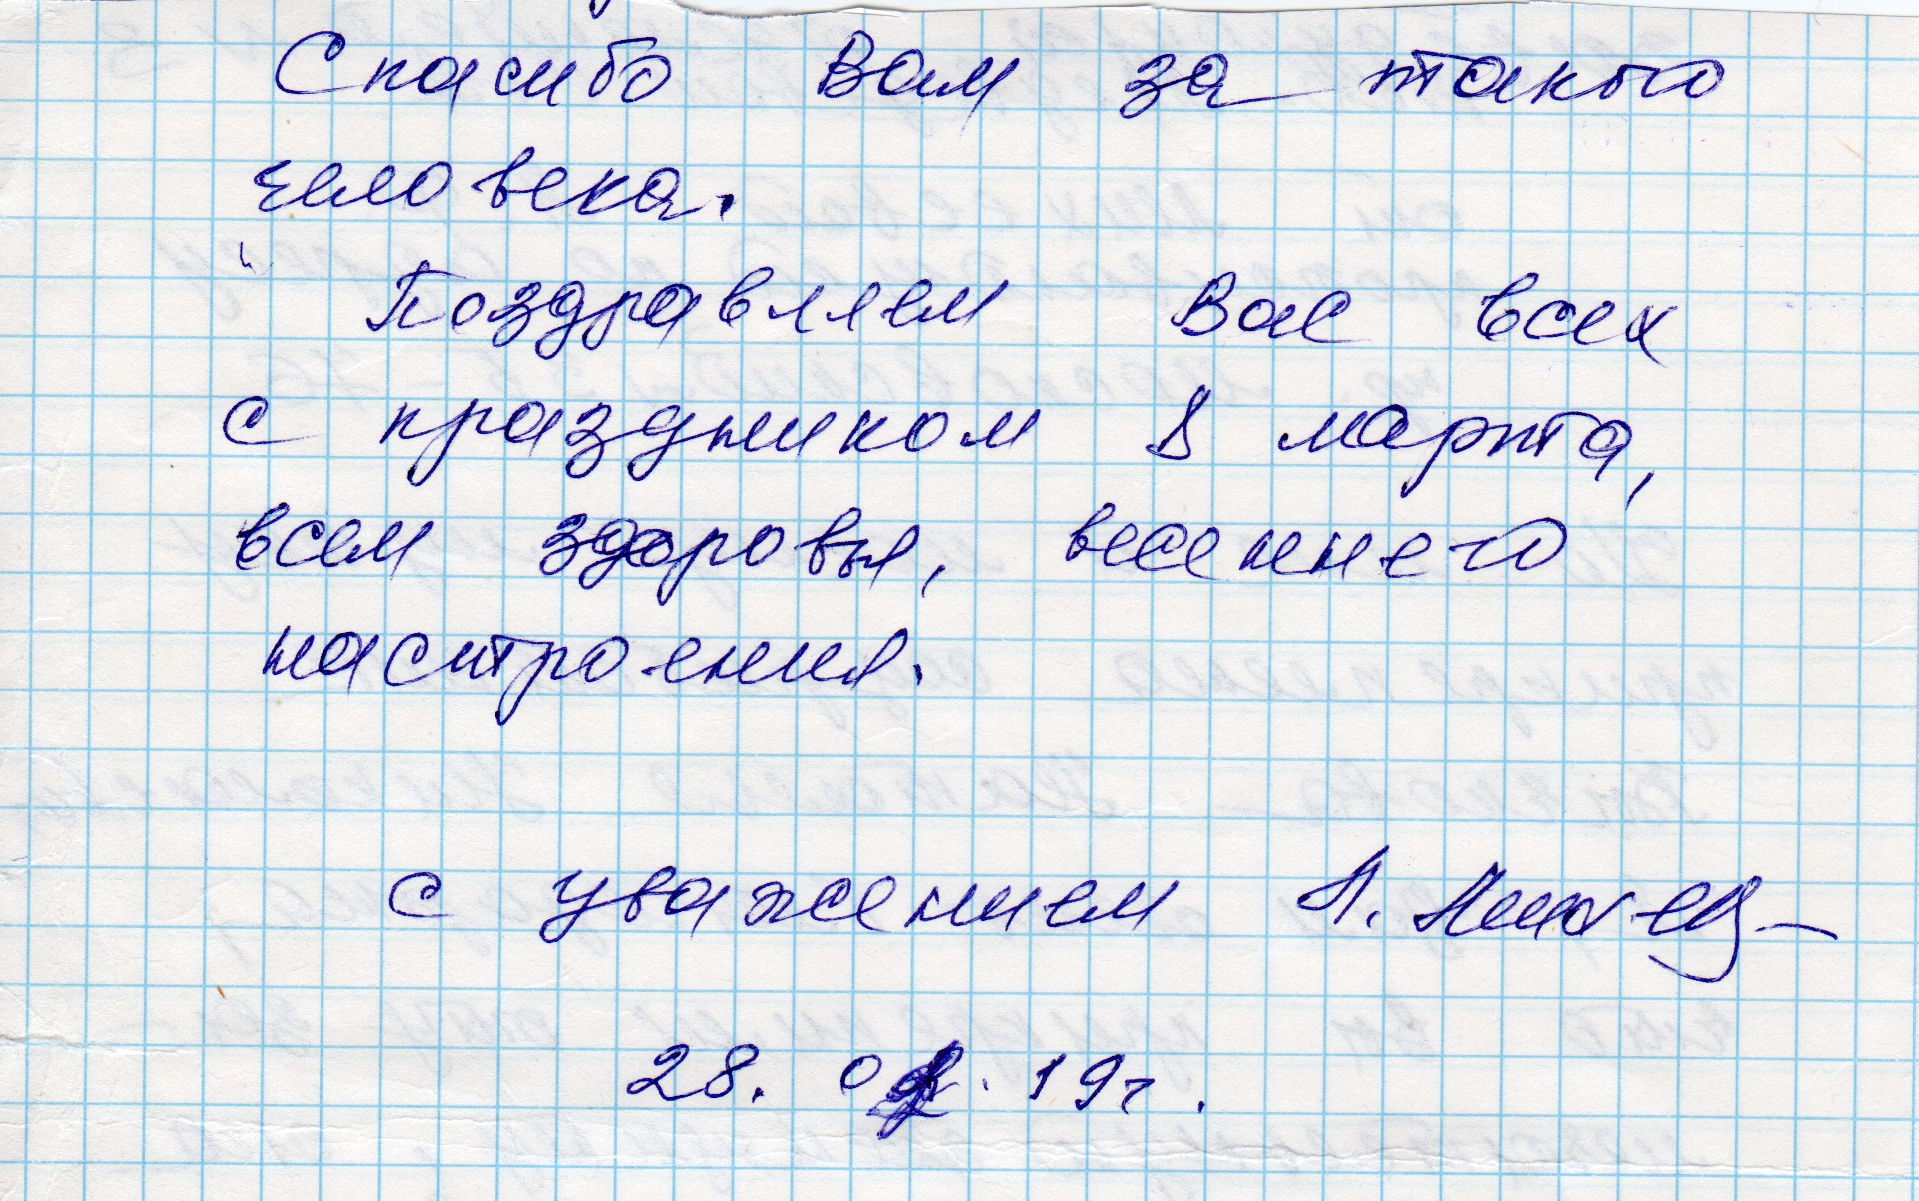 Спасибо Вам за такого
человека.
Поздравляем Вас всех
с праздником 8 марта,
всем здоровья, весеннего
настроения.
с уважением А.
28. 02. 19г.